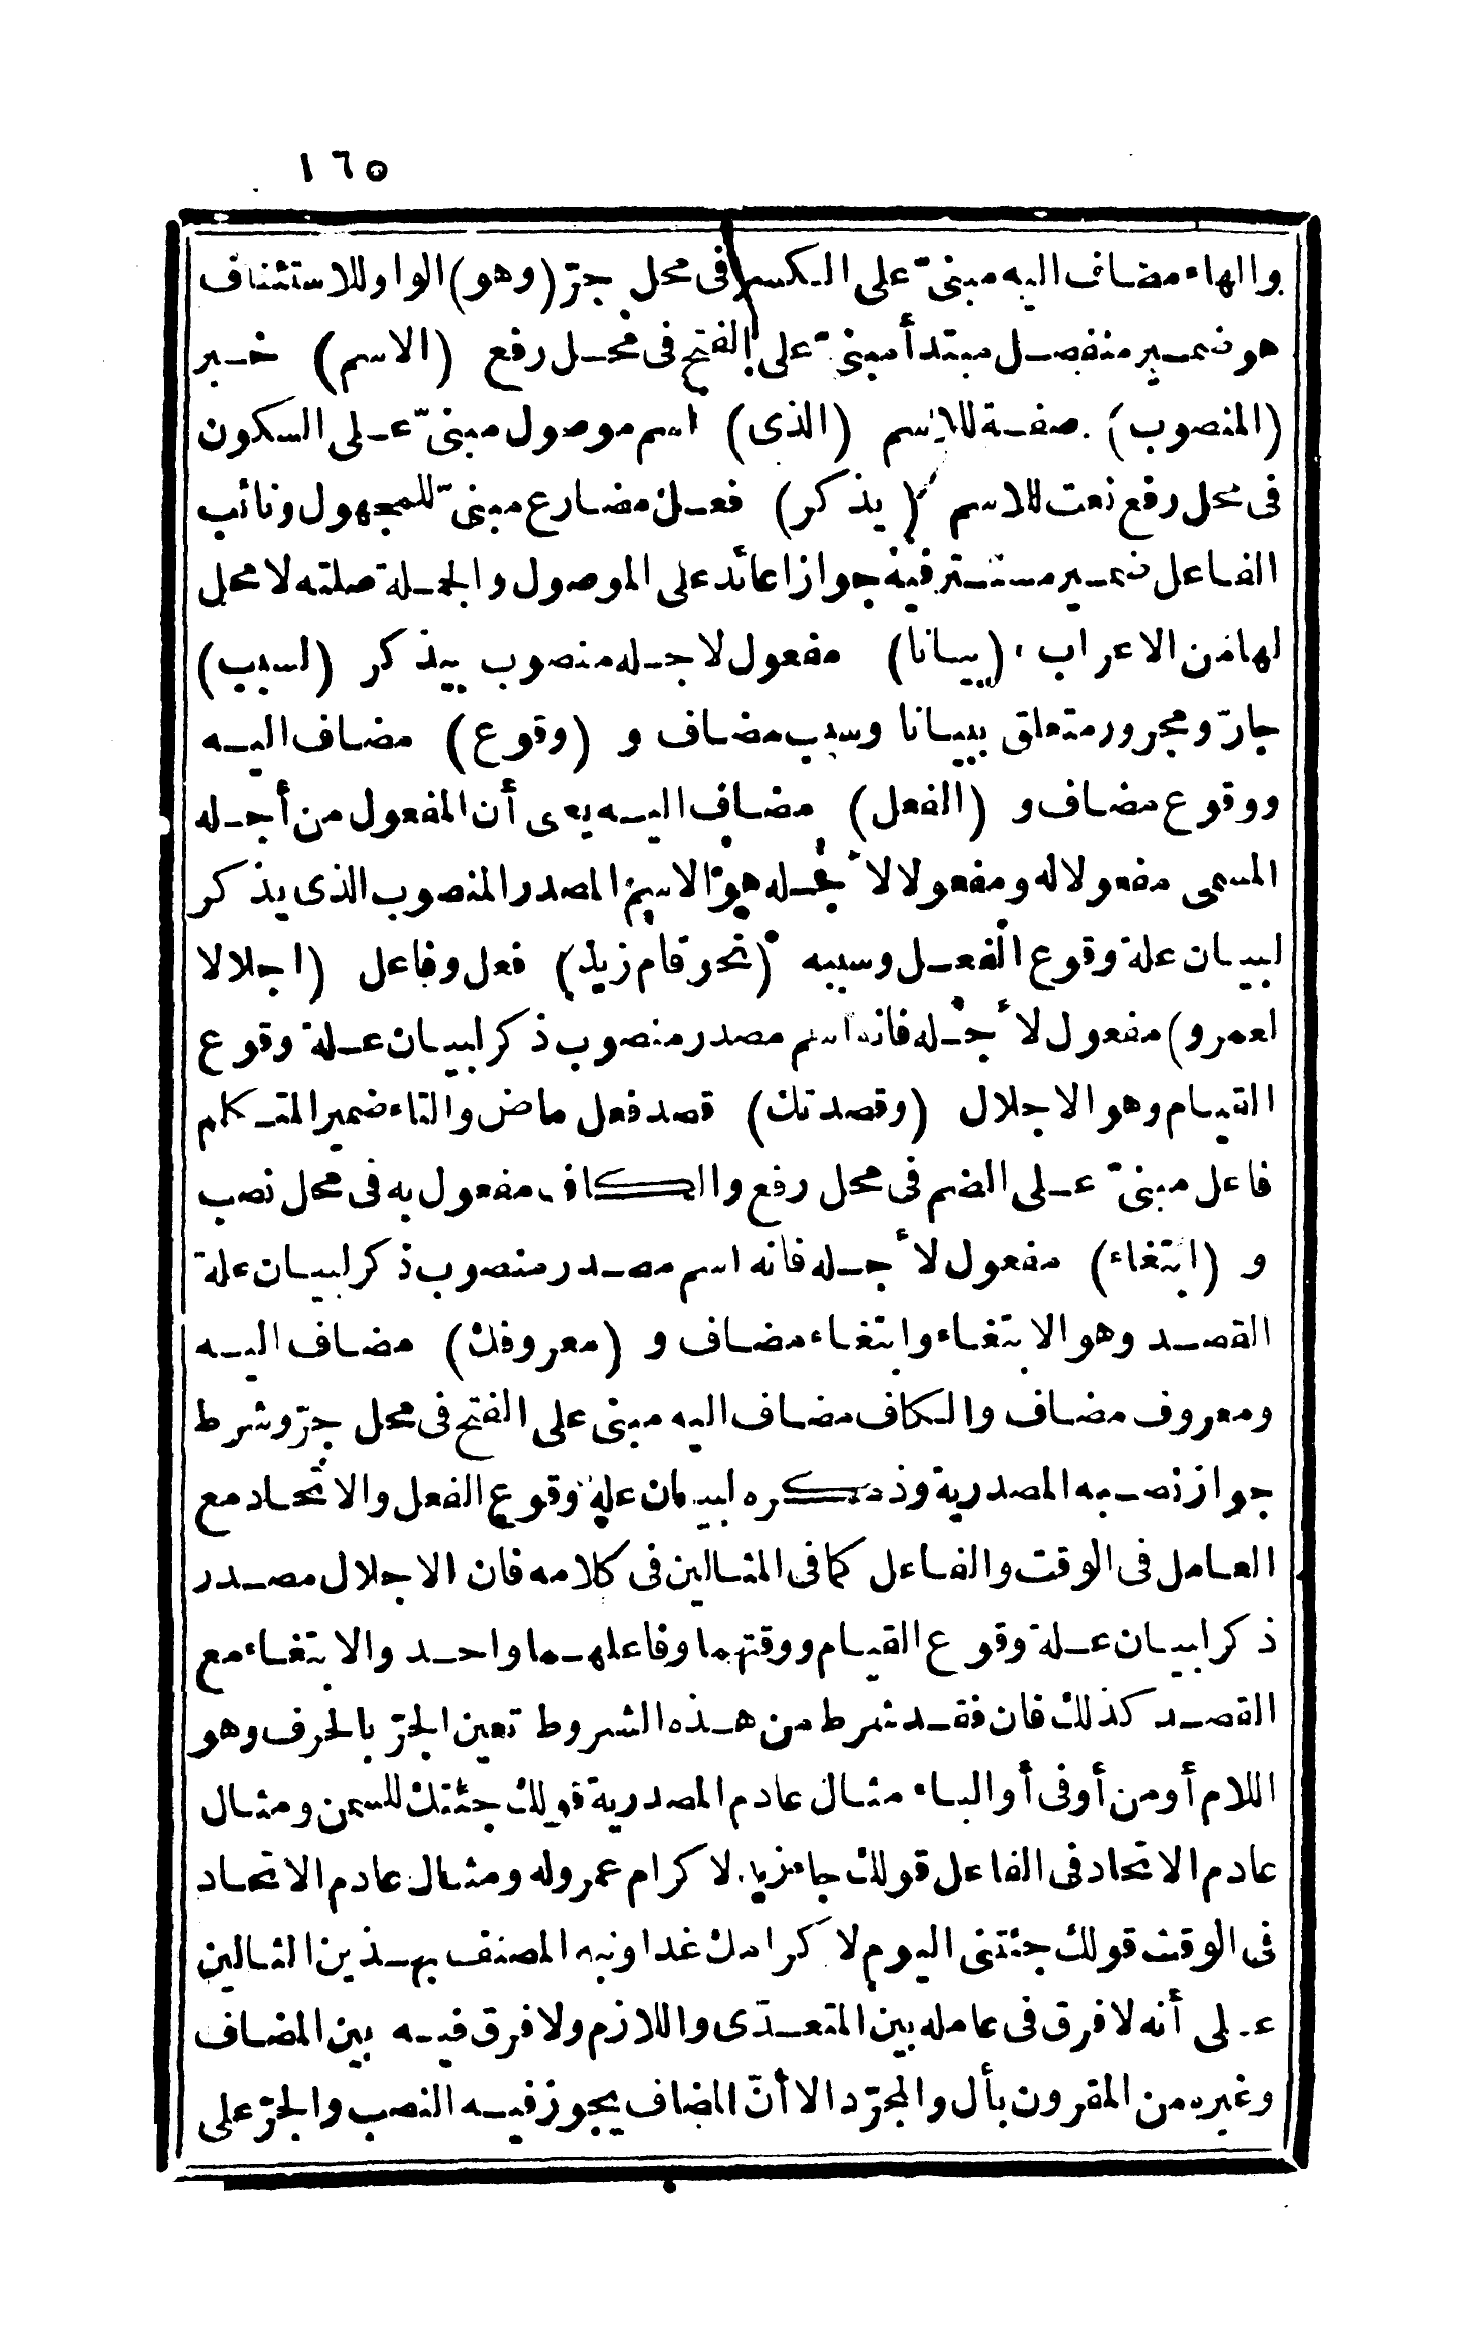 ١٦٥
والهاء مضاف اليه مبنىّ على الكسر فى محل جرّ (وهو) الواو للاستئناف
هو ضمير منفصل مبتدأ مبنىّ على الفتح فى محل رفع (الاسم) خبر
(المنصوب) صفة للاسم (الذى) اسم موصول مبنىّ على السكون
فى محل رفع نعت للاسم (يذكر) فعل مضارع مبنىّ للمجهول ونائب
الفاعل ضمير مستتر فيه جوازا عائد على الموصول والجملة صلته لا محل
لها من الاعراب (بيانا) مفعول لاجله منصوب بيذكر (لسبب)
جارّ ومجرور متعلق ببيانا وسبب مضاف و (وقوع) مضاف اليه
ووقوع مضاف و (الفعل) مضاف اليه يعى أن المفعول من أجله
المسمى مفعولا له ومفعولا لأجله هو الاسم المصدر المنصوب الذى يذكر
لبيان علة وقوع الفعل وسببه (نحو قام زيد) فعل وفاعل (اجلالا
لعمرو) مفعول لأجله فانه اسم مصدر منصوب ذكر لبيان علة وقوع
القيام وهو الاجلال (وقصدتك) قصد فعل ماض والتاء ضمير المتكلم
فاعل مبنىّ على الضم فى محل رفع والكاف مفعول به فى محل نصب
و (ابتغاء) مفعول لأجله فانه اسم مصدر منصوب ذكر لبيان علة
القصد وهو الابتغاء وابتغاء مضاف و (معروفك) مضاف اليه
ومعروف مضاف والكاف مضاف اليه مبنى على الفتح فى محل جرّ وشرط
جواز نصبه المصدرية وذكره لبيان علة وقوع الفعل والاتحاد مع
العامل فى الوقت والفاعل كما فى المثالين فى كلامه فان الاجلال مصدر
ذكر لبيان علة وقوع القيام ووقتهما وفاعلهما واحد والابتغاء مع
القصد كذلك فان فقد شرط من هذه الشروط تعين الجرّ بالحرف وهو
اللام أو من أو فى أو الباء مثال عادم المصدرية قولك جئتك للسمن ومثال
عادم الاتحاد فى الفاعل قولك جاء زيد لاكرام عمرو له ومثال عادم الاتحاد
فى الوقت قولك جئتنى اليوم لاكرامك غدا ونبه المصنف بهذين المثالين
على أنه لا فرق فى عامله بين المتعدّى واللازم ولا فرق فيه بين المضاف
وغيره من المقرون بأل والمجرّد الا أنّ المضاف يجوز فيه النصب والجرّ على